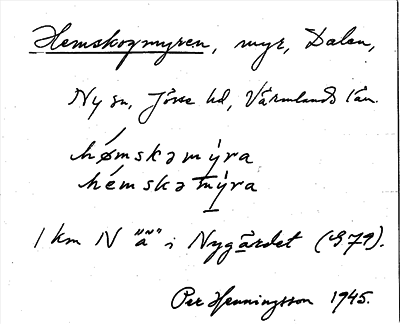 Hemskogmyren, myr, Dalen,
Ny sn, Jösse hd, Värmlands län.
hǿmskəmýra
hémskəmýra
1 km N "a" i Nygårdet (S79).
Per Henningsson 1945.